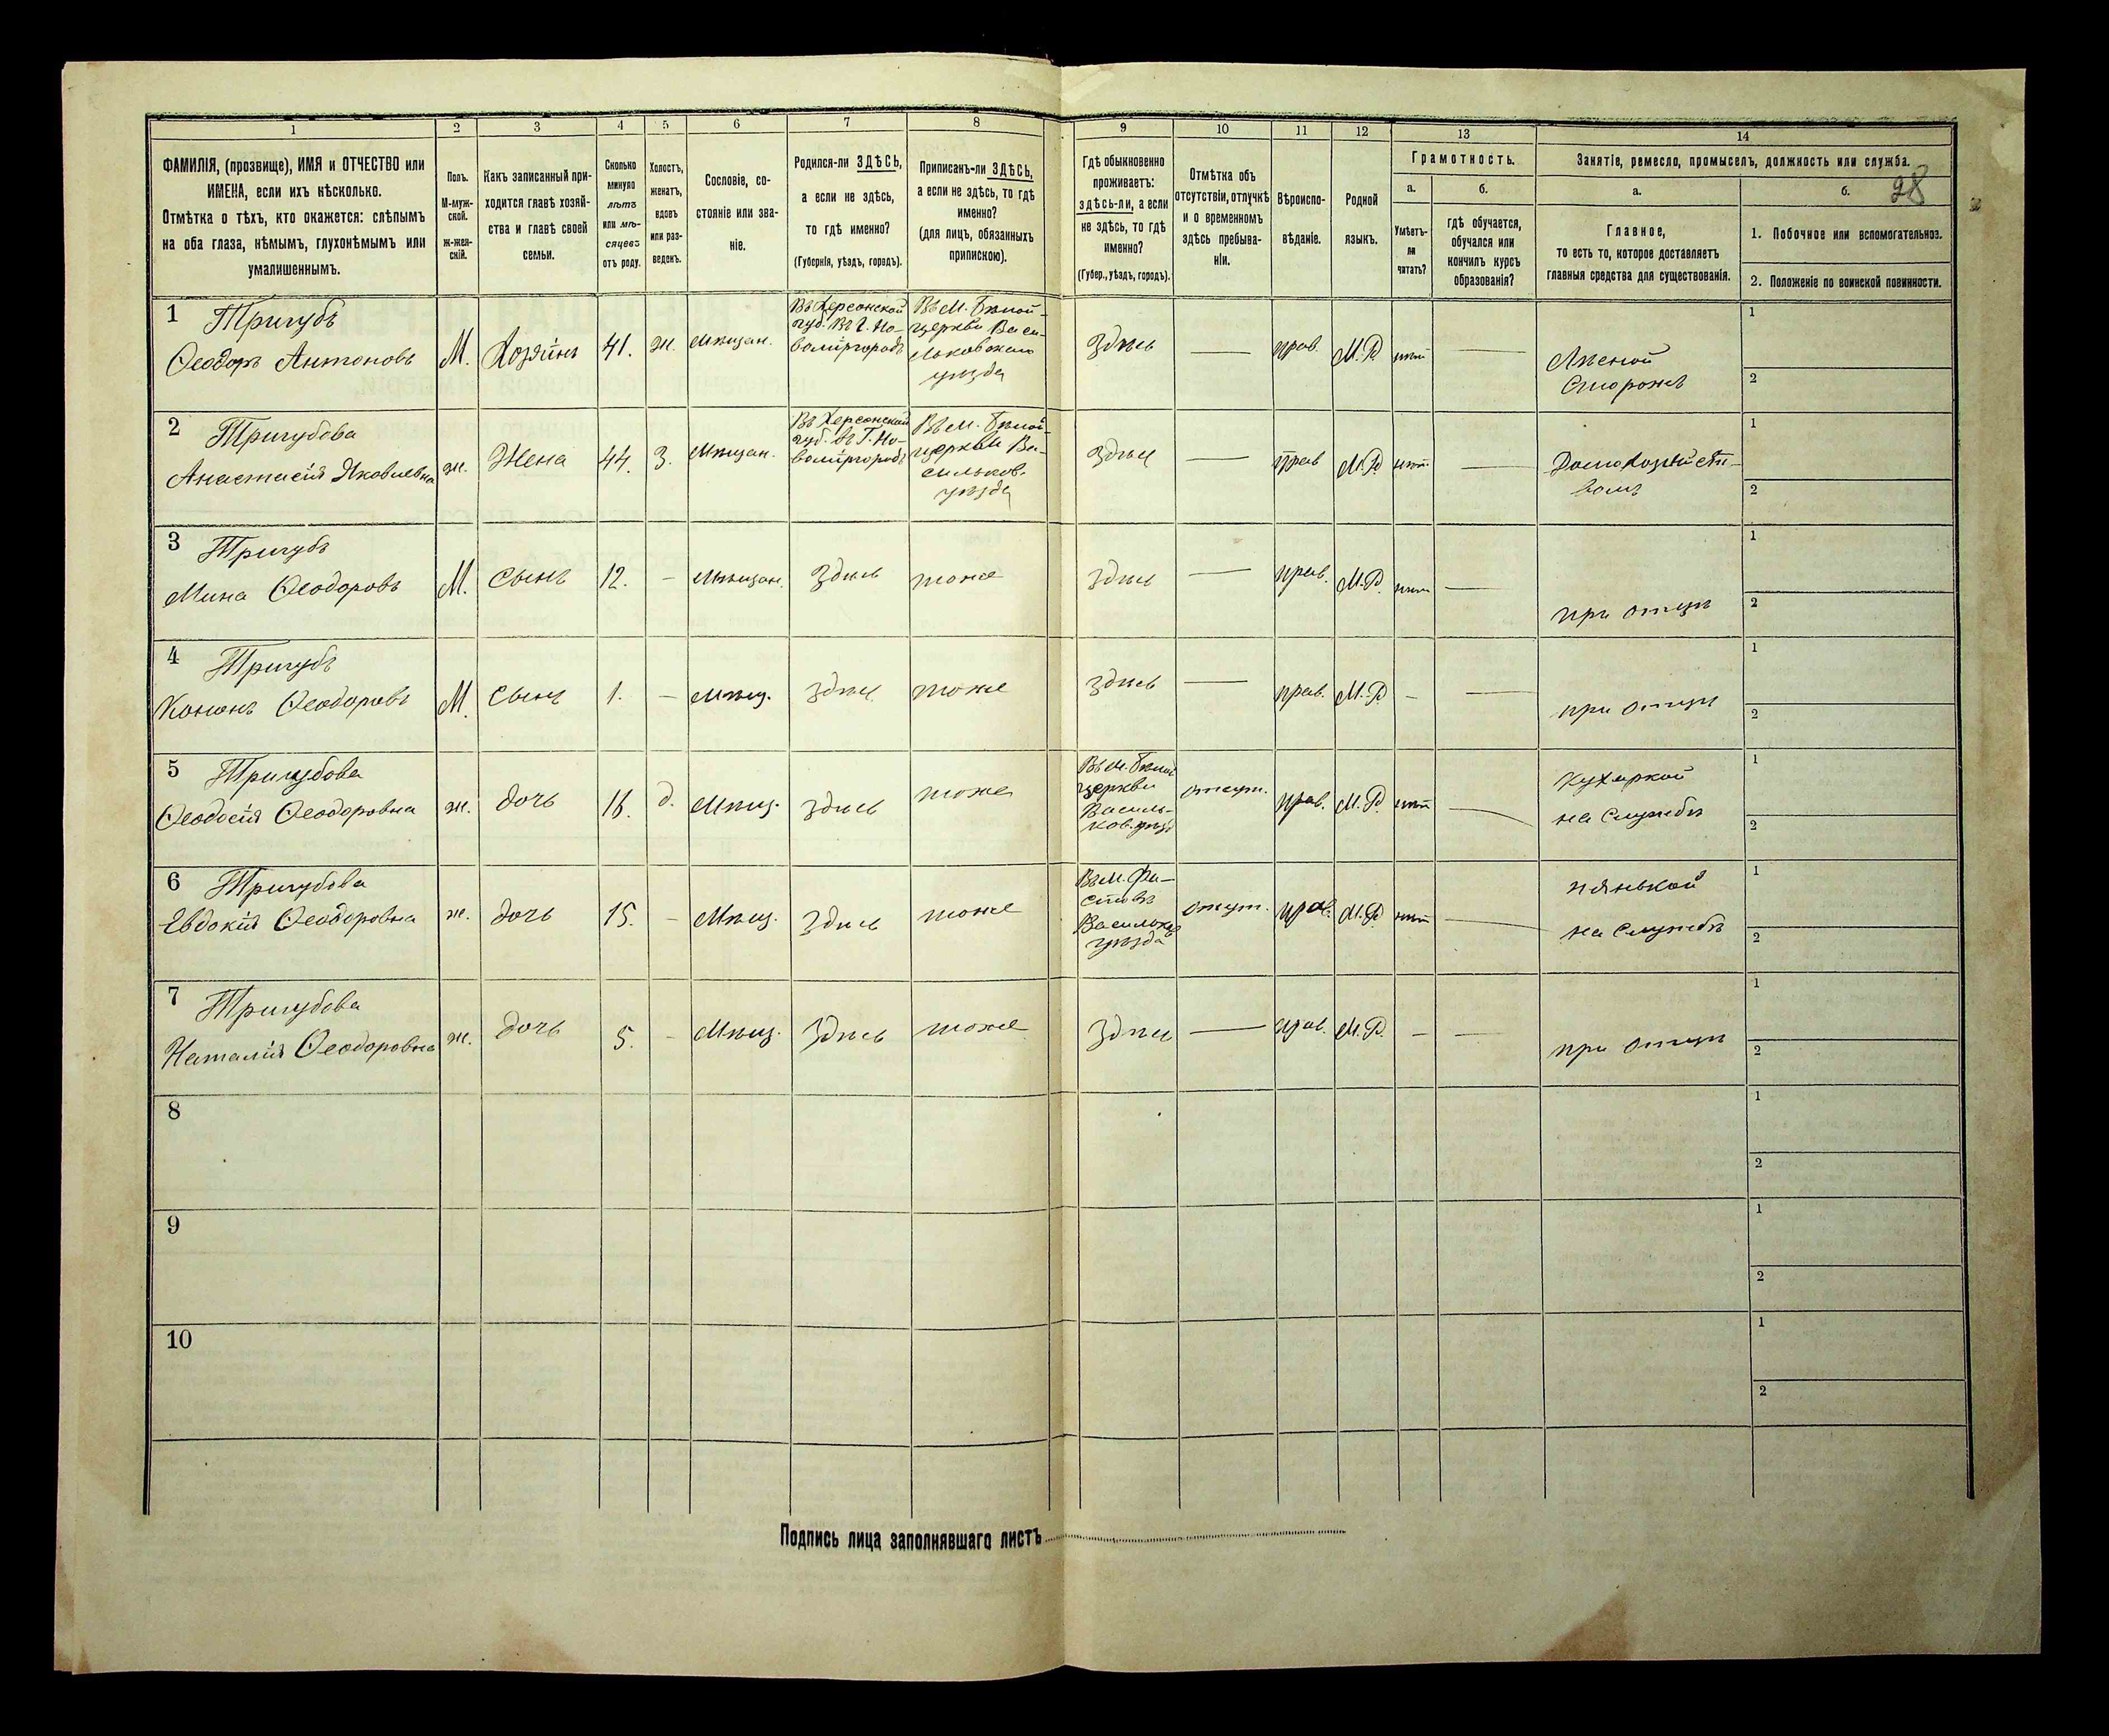 1 2 3 4 5 6 7 8 9 10 11 12 13 14
ФАМИЛІЯ, (прозвище), ИМЯ и ОТЧЕСТВО или
ИМЕНА, если ихъ нѣсколько.
Отмѣтка о тѣхъ, кто окажется: слѣпымъ
на оба глаза, нѣмымъ, глухонѣмымъ или
умалишеннымъ.
Полъ.
М-муж-
ской.
ж-жен-
скій.
Какъ записанный при-
ходится главѣ хозяй-
ства и главѣ своей
семьи.
Сколько
минуло
лѣтъ
или мѣ-
сяцевъ
отъ роду.
Холостъ,
женатъ,
вдовъ
или раз-
веденъ.
Сословіе, со-
стояніе или зва-
ніе.
Родился-ли ЗДѢСЬ,
а если не здѣсь,
то гдѣ именно?
(Губернія, уѣздъ, городъ).
Приписанъ-ли ЗДѢСЬ,
а если не здѣсь, то гдѣ
именно?
(для лицъ, обязанныхъ
припискою).
Гдѣ обыкновенно
проживаетъ:
здѣсь-ли, а если
не здѣсь, то гдѣ
именно?
(Губер., уѣздъ, городъ).
Отмѣтка объ
отсутствіи, отлучкѣ
и о временномъ
здѣсь пребыва-
ніи.
Вѣроиспо-
вѣданіе.
Родной
языкъ.
Грамотность.
а.
Умѣетъ-
ли
читать?
б.
гдѣ обучается,
обучался или
кончилъ курсъ
образованія?
Занятіе, ремесло, промыселъ, должность или служба.
а.
Главное,
то есть то, которое доставляетъ
главныя средства для существованія.
б.
28
1. Побочное или вспомогательное.
2. Положеніе по воинской повинности.
1 Тригубъ
Ѳеодоръ Антоновъ
М.
Хозяинъ
41.
ж.
мѣщан.
Въ Херсонской
губ. Въ г. Но-
вомиргородѣ
Въ М. Бѣлой-
церкви Васи-
льковскаго
уѣзда
здѣсь
—
прав.
М.Р.
нѣт
—
Лѣсной
Сторожъ
1
2
2 Тригубова
Анастасія Яковлевна
ж.
Жена
44.
З.
Мѣщан.
Въ Херсонской
губ. въ Г. Но-
вомиргородѣ
Въ м. Бѣлой-
церкви Ва-
сильков.
уѣзда
здѣсь
—
прав
М.Р
нѣт
—
Домохозяйст-
вомъ
1
2
3 Тригубъ
Мина Ѳеодоровъ
М.
Сынъ
12.
-
Мѣщан.
Здѣсь
тоже
здѣсь
—
прав.
М.Р.
нѣт
—
при отцѣ
1
2
4 Тригубъ
Кононъ Ѳеодоровъ
М.
Сынъ
1.
-
мѣщ.
здѣсь
тоже
здѣсь
—
прав.
М.Р
-
—
при отцѣ
1
2
5 Тригубова
Ѳеодосія Ѳеодоровна
ж.
дочь
д.
Мѣщ.
здѣсь
тоже
Въ м. Бѣлой
церкви
Василь-
ков. уѣзд
отсут.
прав.
М.Р
нѣт
—
Кухаркой
на Службѣ
1
2
6 Тригубова
Евдокія Ѳеодоровна
ж.
дочь
15.
-
Мѣщ.
здѣсь
тоже
Въ м. Фа-
стовъ
Васильков
уѣзда
отсут.
прав.
М.Р
нѣт
—
нянькой
на Службѣ
1
2
7 Тригубова
Наталія Ѳеодоровна
ж.
дочь
5.
-
Мѣщ.
Здѣсь
тоже
Здѣсь
—
прав.
М.Р.
-
—
при отцѣ
1
2
8
1
2
9
1
2
10
1
2
Подпись лица заполнявшаго листъ